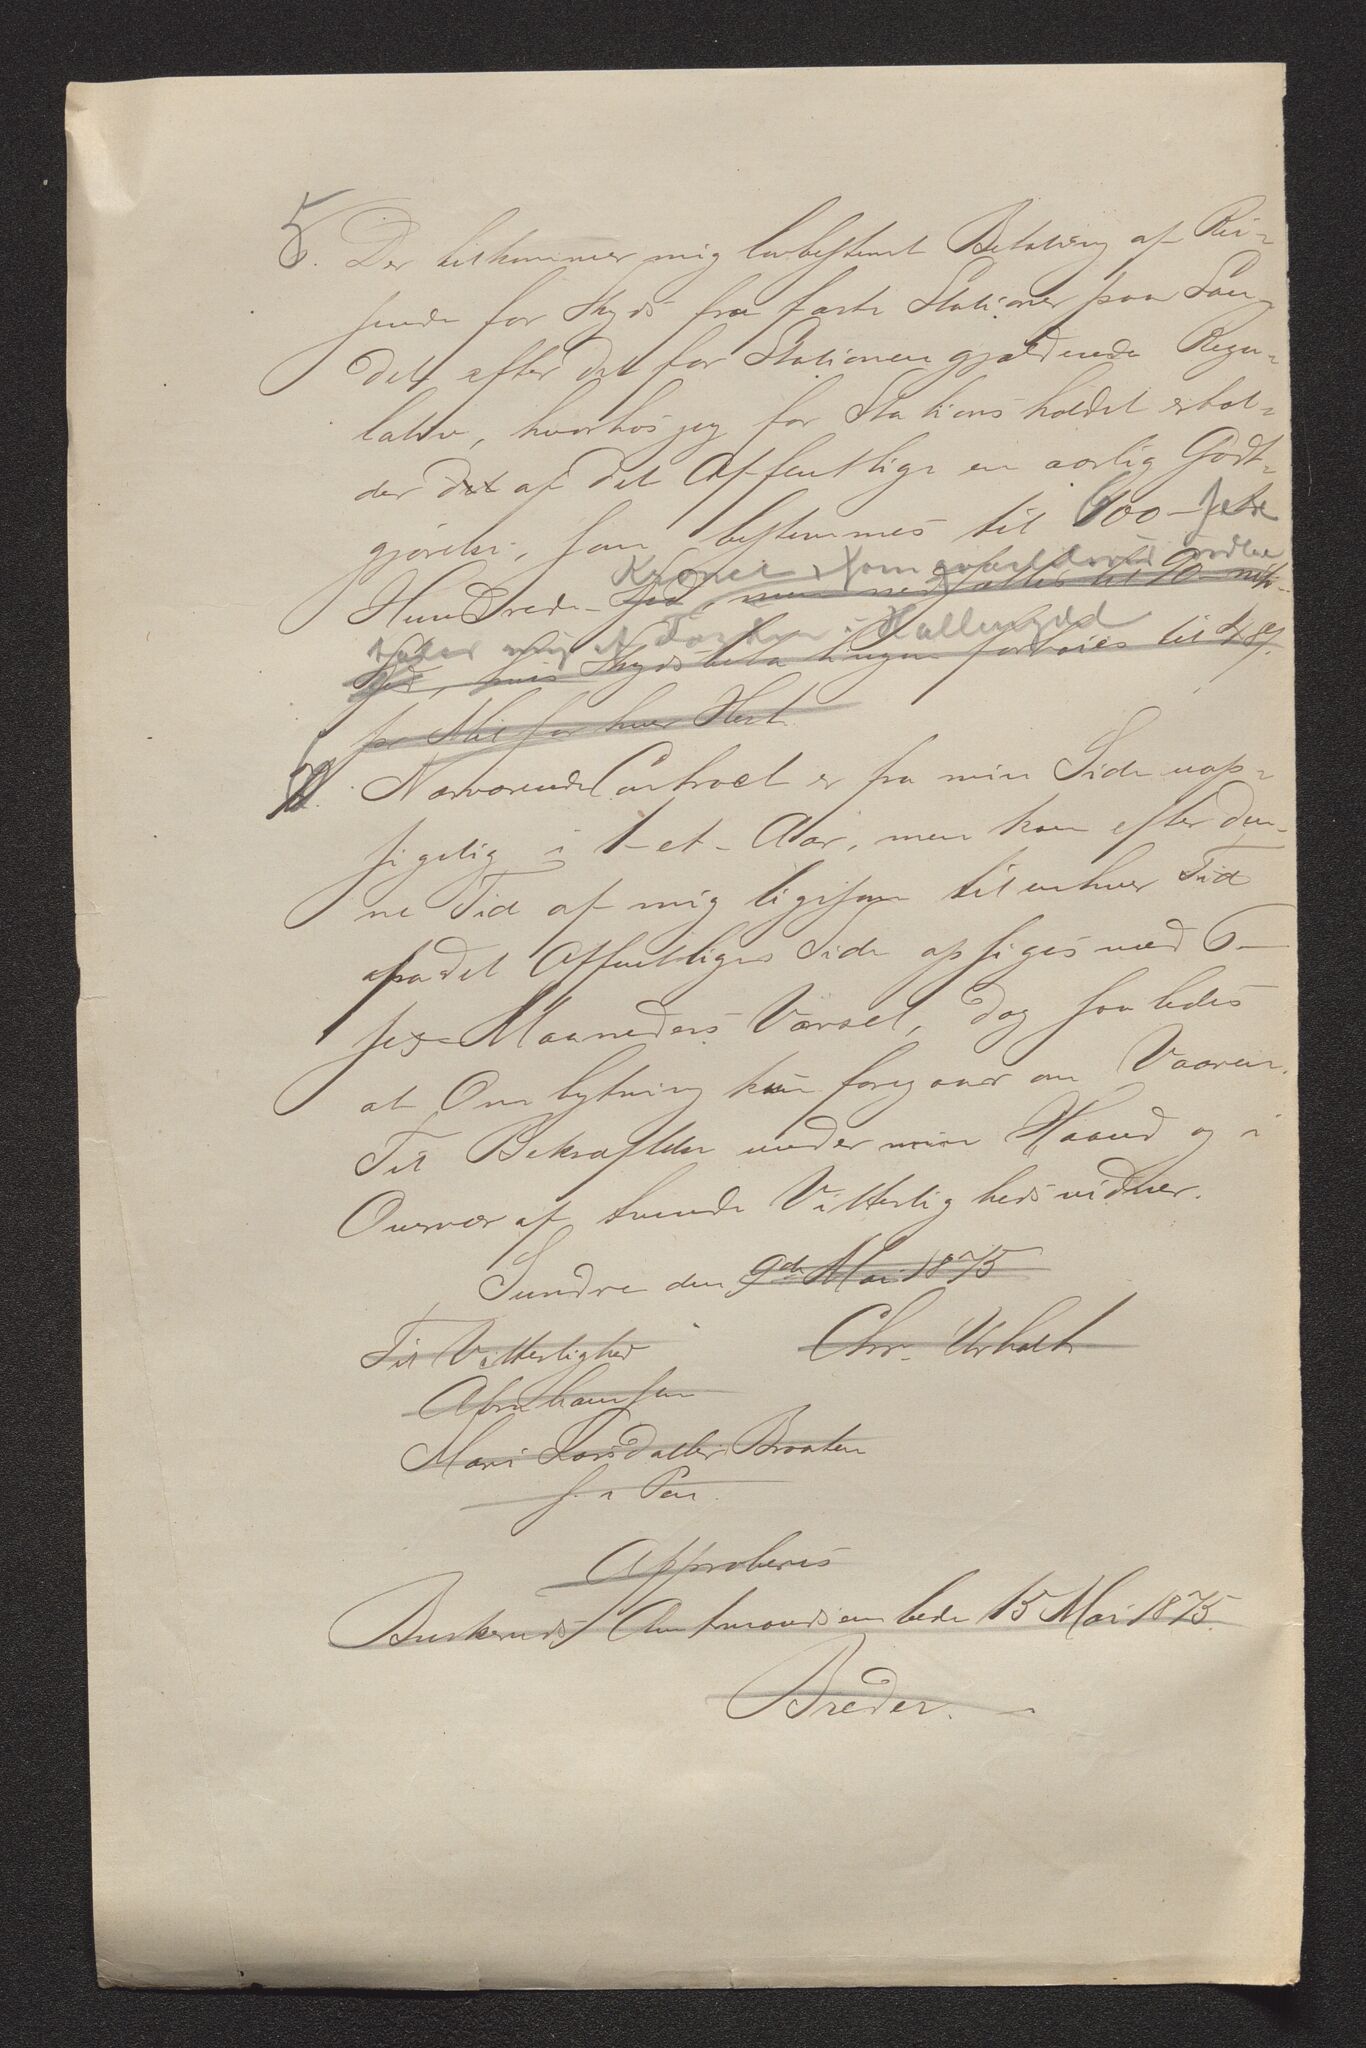 5. Der tilkommer mig lovbestemt Betaling af Rei-
sende for Skyds fra faste Stationer paa Lan-
det efter det for Stationen gjældende Regu-
lativ, hvorhos jeg for Stationsholdet erhol-
der det af det Offentlige en aarlig Godt-
gjørelse, som bestemmes til 100 –
Kroner som qvartalsvis
Hundrede – Spd, men nedsættes til 90 – niti –
taler mig af Fogden i Hallingdal
Spd, hvis Skydsbetalingen forhøies til
pr Mil for hver Hest.
Nærværende Contract er fra min Side uop-
sigelig i 1 – et – Aar, men kan efter den-
ne Tid af mig ligesom til enhver Tid
fra det Offentliges Side opsiges med 6 –
sex – Maaneders Varsel, dog saaledes
at Ombytning kun foregaaer om Vaaren.
Til Bekræftelse under min Haand og i
Overvær af tvende Vitterlighedsvidner.
Sundre den 9de Mai 1875
Til Vitterlighed
Chr.
Abrahamsen
Mari Larsdatter Braaten
f. i Pen.
Approberes
Buskeruds Amtmandsembede 15 Mai 1875.
Breder.